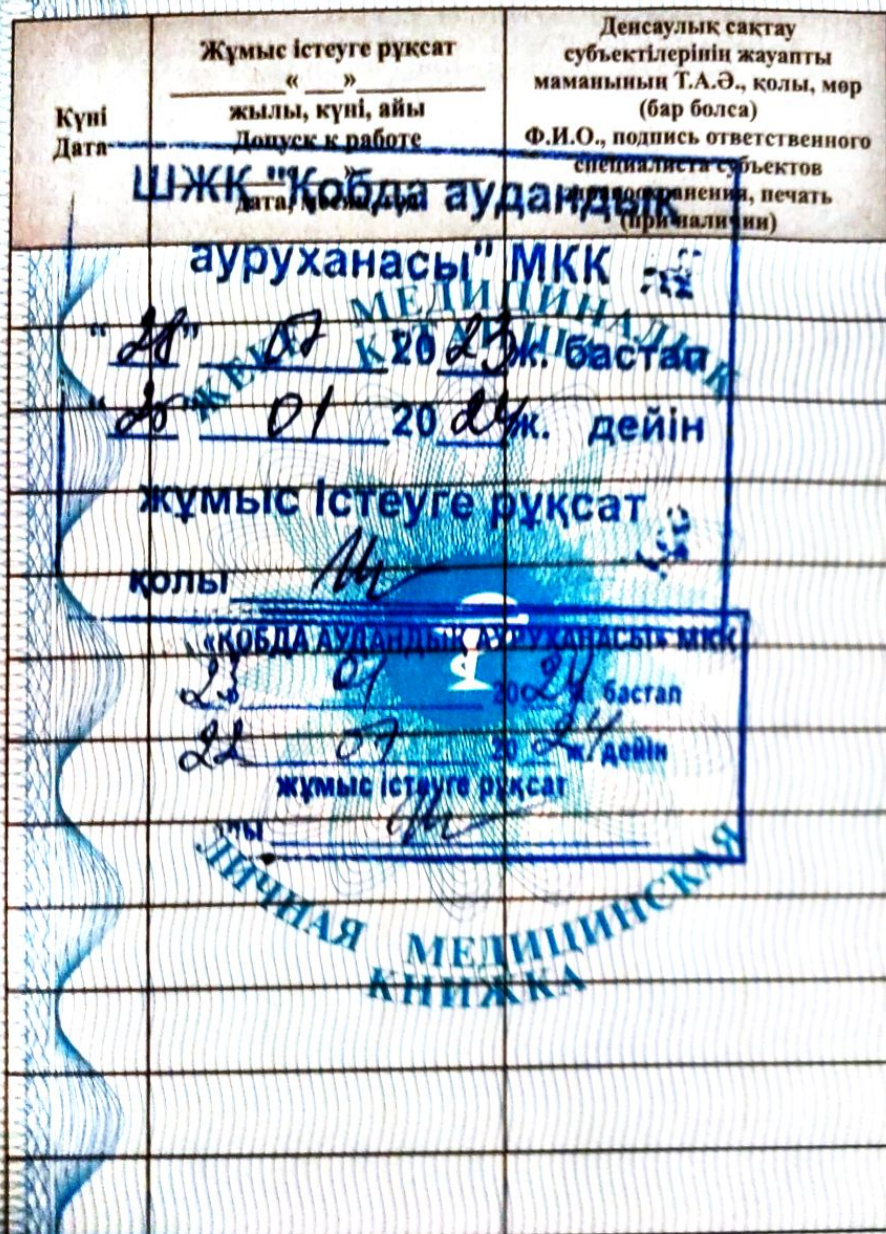 Күні
Дата
Жұмыс істеуге рұқсат
«__»
жылы, күні, айы
Допуск к работе
Денсаулық сақтау
субъектілерінің жауапты
маманының Т.А.Ә., қолы, мөр
(бар болса)
Ф.И.О., подпись ответственного
специалиста субъектов
печать
(при наличии)
ШЖК "Қобда аудандық
ауруханасы" МКК
ЖЕКЕ МЕДИЦИНАЛЫҚ
"28" 07 2023ж. бастап
01 2024ж. дейін
жұмыс істеуге рұқсат
қолы
«ҚОБДА АУДАНДЫҚ АУРУХАНАСЫ» МКК
23 01 2024ж. бастап
22 07 2024ж. дейін
жұмыс істеуге рұқсат
ЛИЧНАЯ МЕДИЦИНСКАЯ
КНИЖКА